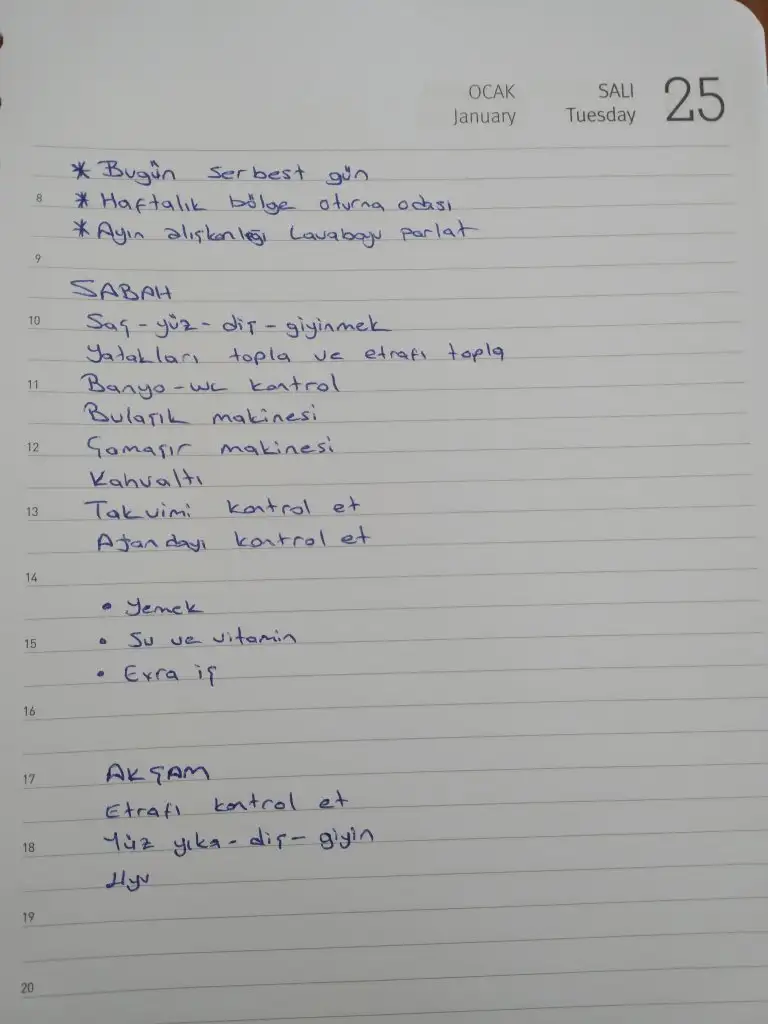 OCAK SALI 25
January Tuesday
* Bugün serbest gün
8 * Haftalık bölge oturma odası
* Ayın alışkanlığı Lavaboyu parlat
9
SABAH
10 Saç - yüz - diş - giyinmek
Yatakları topla ve etrafı topla
11 Banyo - wc kontrol
Bulaşık makinesi
12 Çamaşır makinesi
Kahvaltı
13 Takvimi kontrol et
Ajandayı kontrol et
14
• Yemek
15 • Su ve vitamin
• Exra iş
16
17 AKŞAM
Etrafı kontrol et
18 Yüz yıka - diş - giyin
Uyu
19
20